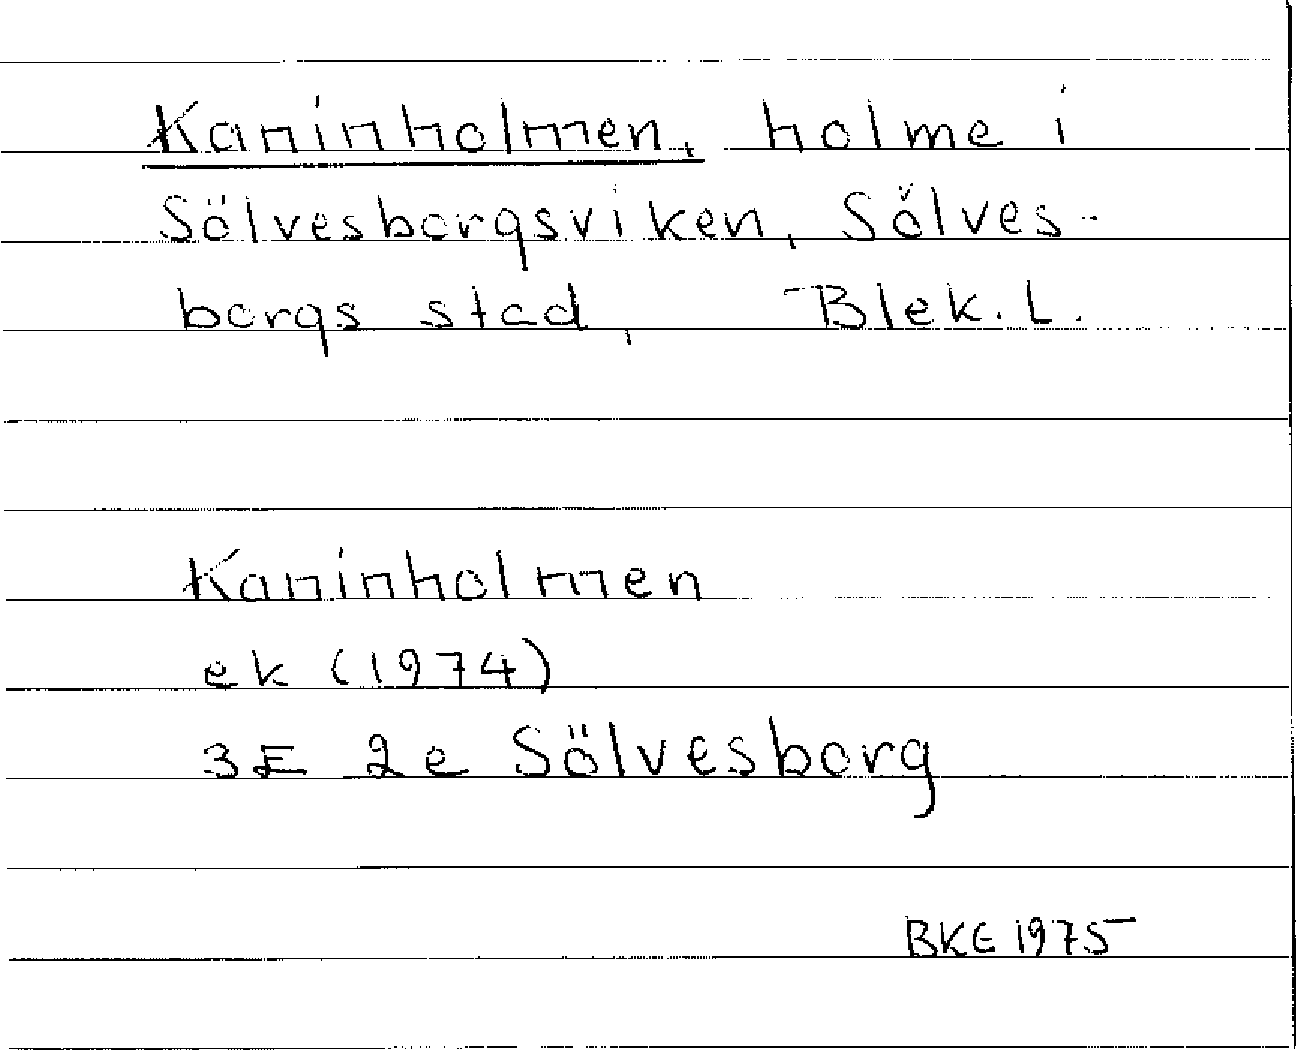 Kaninholmen, holme i
Sölvesborgsviken, Sölves-
borgs stad, Blek. L.
Kaninholmen
ek (1974)
3E 2e Sölvesborg
BKE 1975